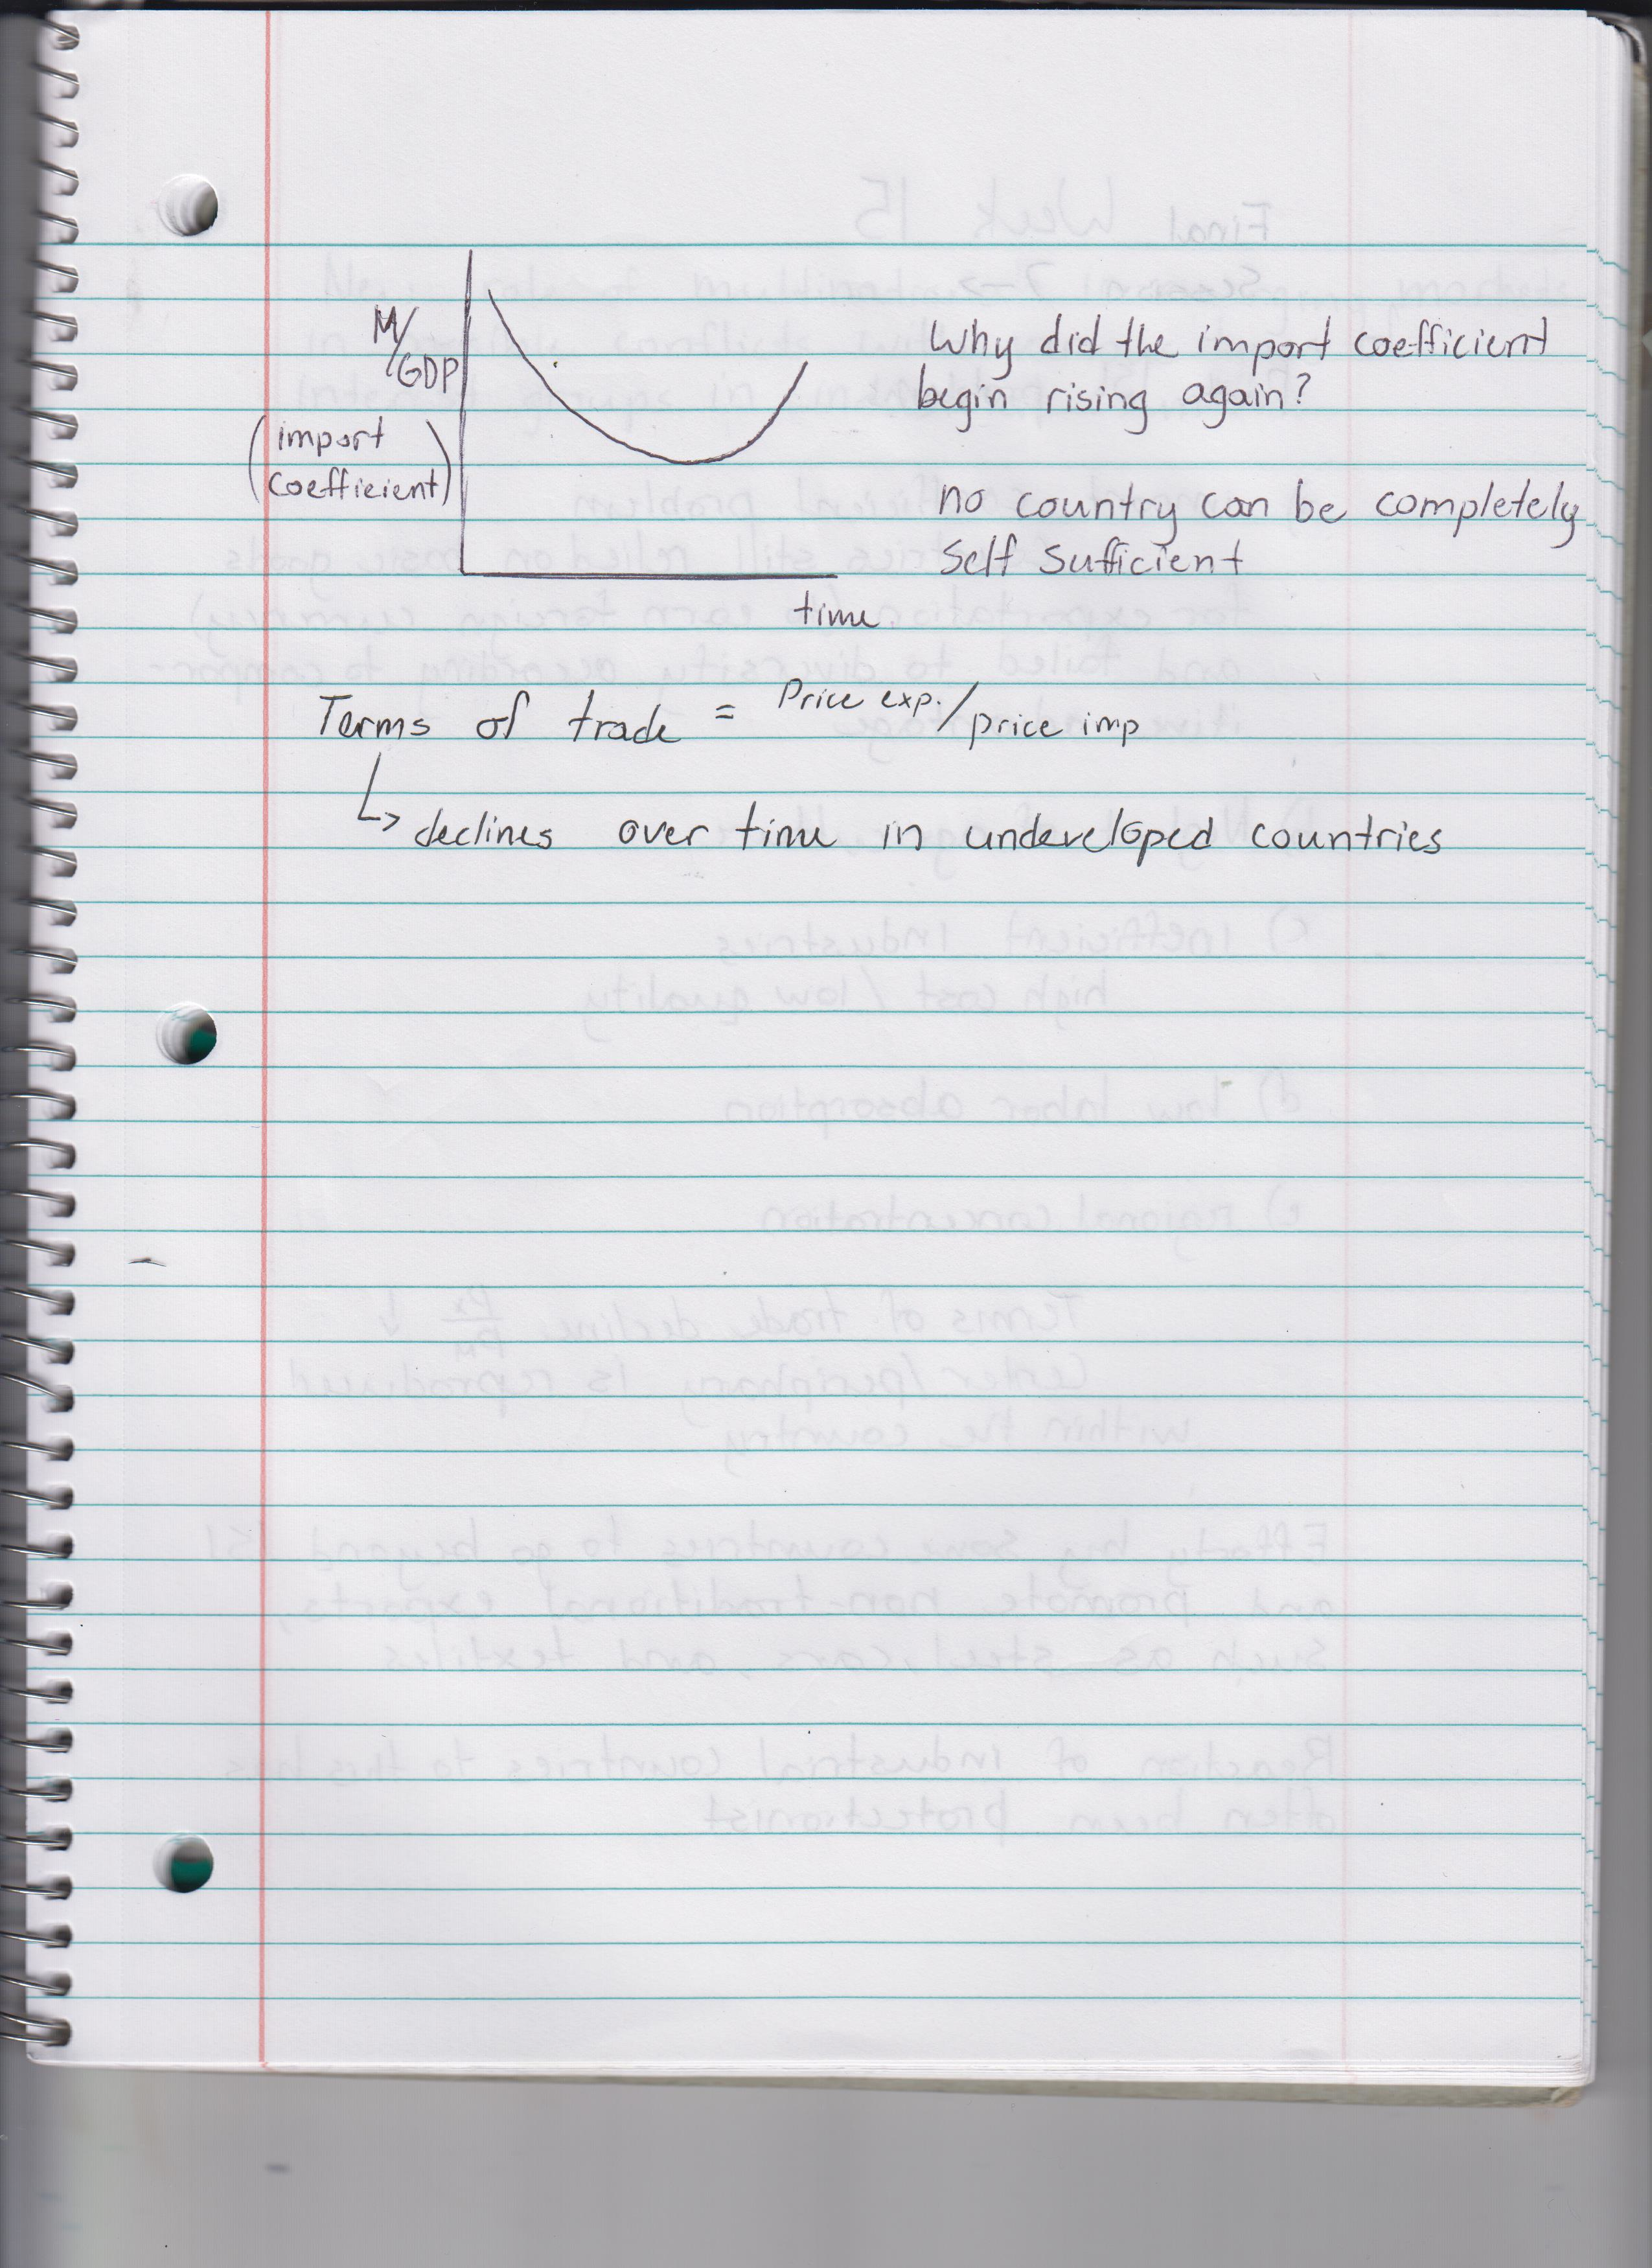 M/GDP
(import
coefficient)
time
Why did the import coefficient
begin rising again?
no country can be completely
self sufficient
Terms of trade = Price exp./price imp
↳ declines over time in undeveloped countries